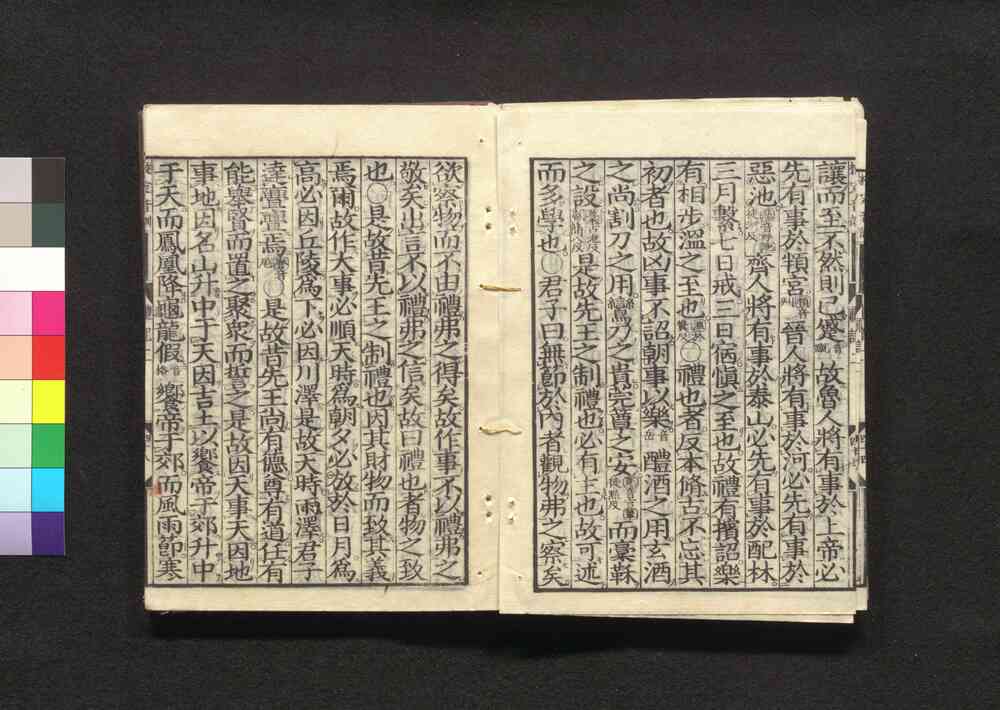 讓而至不然則已蹙故魯人將有事於上帝必
先有事於頖宮晉人將有事於河必先有事於
惡池齊人將有事於泰山必先有事於配林
三月繫七日戒三日宿愼之至也故禮有擯詔樂
有相步溫之至也○禮也者反本脩古不忘其
初者也故凶事不詔朝事以樂醴酒之用玄酒
之尚割刀之用鸞刀之貴莞簟之安而稾鞂
之設是故先王之制禮也必有主也故可述
而多學也○君子曰無節於內者觀物弗之察矣
欲察物而不由禮弗之得矣故作事不以禮弗之
敬矣出言不以禮弗之信矣故曰禮也者物之致
也○是故昔先王之制禮也因其財物而致其義
焉爾故作大事必順天時爲朝夕必放於日月爲
高必因丘陵爲下必因川澤是故天時雨澤君子
達亹亹焉○是故昔先王尚有德尊有道任有
能舉賢而置之聚衆而誓之是故因天事天因地
事地因名山升中于天因吉土以饗帝于郊升中
于天而鳳凰降龜龍假饗帝于郊而風雨節寒